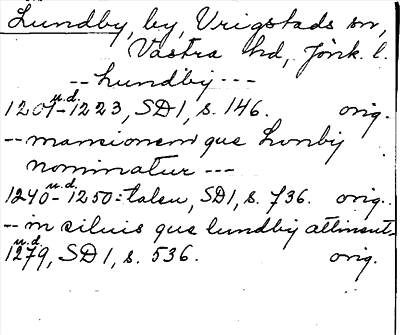 Lundby, by, Vrigstads sn,
Västra hd, Jönk. l.
-- lundbij ---
u.d. 1201-1223, SD 1, s. 146. orig.
-- mansionem que Lunbij
nominatur ---
u.d. 1240-1250=talen, SD 1, s. 736. orig.
-- in siluis que lundbij attinent-
u.d. 1279, SD 1, s. 536. orig.